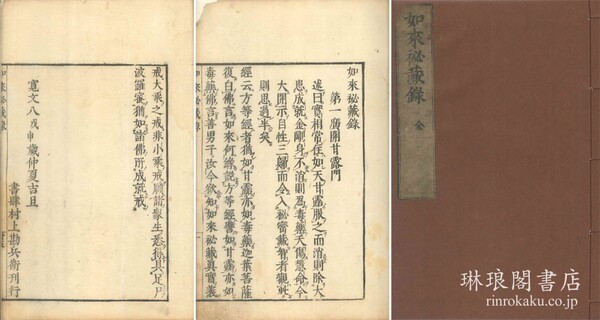 如來秘藏錄 全
如來秘藏錄
第一廣開甘露門
述曰實相常住如天甘露服之而消則除大
患成就金剛身不消則為毒藥夭傷慧命今
大開示自性三
而令入秘密藏智者觀此
則思過半矣
經云方等經者猶如甘露亦如毒藥迦葉菩薩
復白佛言如來何緣說方等經譬如甘露亦如
毒藥佛言善男子汝今欲知如來秘藏真實義
如來秘藏錄
戒大乘之戒非小乘戒願諸眾生悉得具足尸
波羅蜜猶如諸佛所成就戒
寬文八戊申歲仲夏吉旦
書肆村上勘兵衛刊行
如來秘藏錄
琳琅閣書店
rinrokaku.co.jp